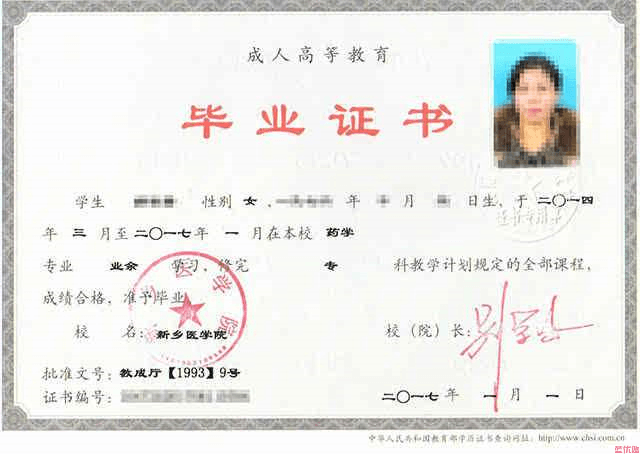 成人高等教育
毕业证书
学生 性别 女, 年 月 日生,于 二〇一四
年 三 月至 二〇一七年 一 月在本校 药学
专业 业余 学习,修完 专 科教学计划规定的全部课程,
成绩合格,准予毕业。
校 名:新乡医学院
校(院)长:
批准文号:教成厅【1993】9号
证书编号:
二〇一七 年 一 月 一 日
中华人民共和国教育部学历证书查询网址:http://www.chsi.com.cn